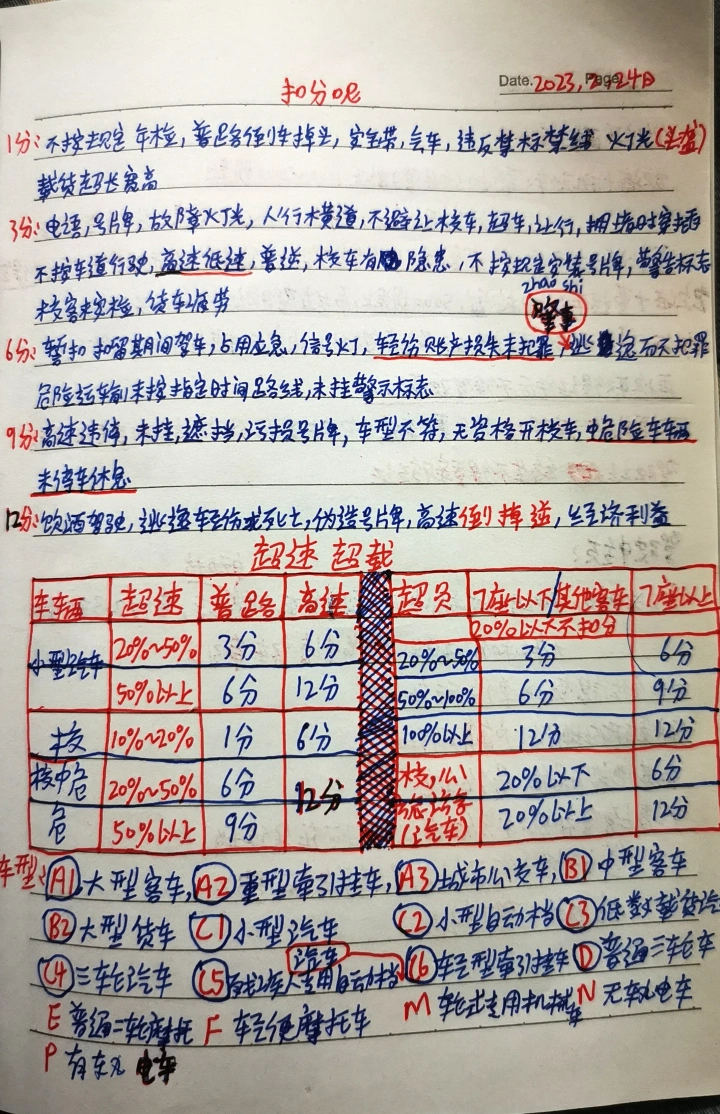 扣分呢
Date. 2023, 2, 24日
1分: 不按规定年检, 普路倒车掉头, 安全带, 会车, 违反禁标禁线 灯光(头盔)
载货超长宽高
3分: 电话, 号牌, 故障灯光, 人行横道, 不避让校车, 超车, 让行, 拥堵时穿插
不按车道行驶, 高速低速, 普逆, 校车有隐患, 不按规定安装号牌, 警告标志
校客未安检, 货车疲劳
zhao shi
肇事
6分: 暂扣扣留期间驾车, 占用应急, 信号灯, 轻伤财产损失未犯罪 逃逸而不犯罪
危险运输未按指定时间路线, 未挂警示标志
9分: 高速违停, 未挂, 遮挡, 污损号牌, 车型不符, 无资格开校车, 中危险车车辆
未停车休息
12分: 饮酒驾驶, 逃逸轻伤或死亡, 伪造号牌, 高速倒掉逆, 经济利益
超速 超载
车车辆 超速 普路 高速 超员 7座以下/其他客车 7座以上
20%以下不扣分
小型汽车 20%~50% 3分 6分 20%~50% 3分 6分
50%以上 6分 12分 50%~100% 6分 9分
校 10%~20% 1分 6分 100%以上 12分 12分
校中危 20%~50% 6分 12分 校, 公 20%以下 6分
危 50%以上 9分 (汽车) 20%以上 12分
车型: A1 大型客车, A2 重型牵引挂车, A3 城市公交车, B1 中型客车
B2 大型货车 C1 小型汽车 C2 小型自动档 C3 低数载货汽
汽车
C4 三车轮汽车 C5 专用自动档 C6 轻型牵引挂车 D 普通三轮车
E 普通二轮摩托 F 轻便摩托车 M 轮式专用机械车 N 无轨电车
P 有轨电车